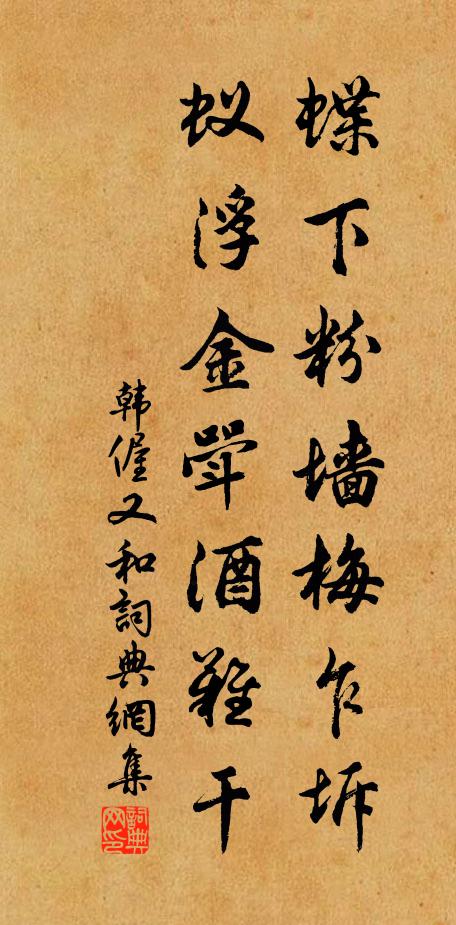 蝶下粉墙梅乍坼
蚁浮金斝酒难干
韩偓又和詞典網集
詞典网印